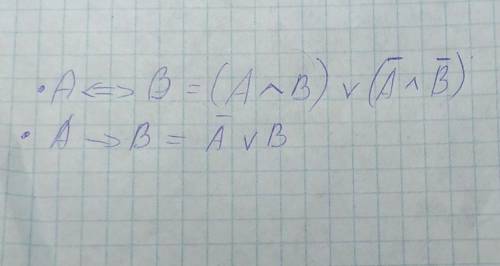 • A <=> B = (A ∧ B) ∨ (A̅ ∧ B̅)
• A → B = A̅ ∨ B